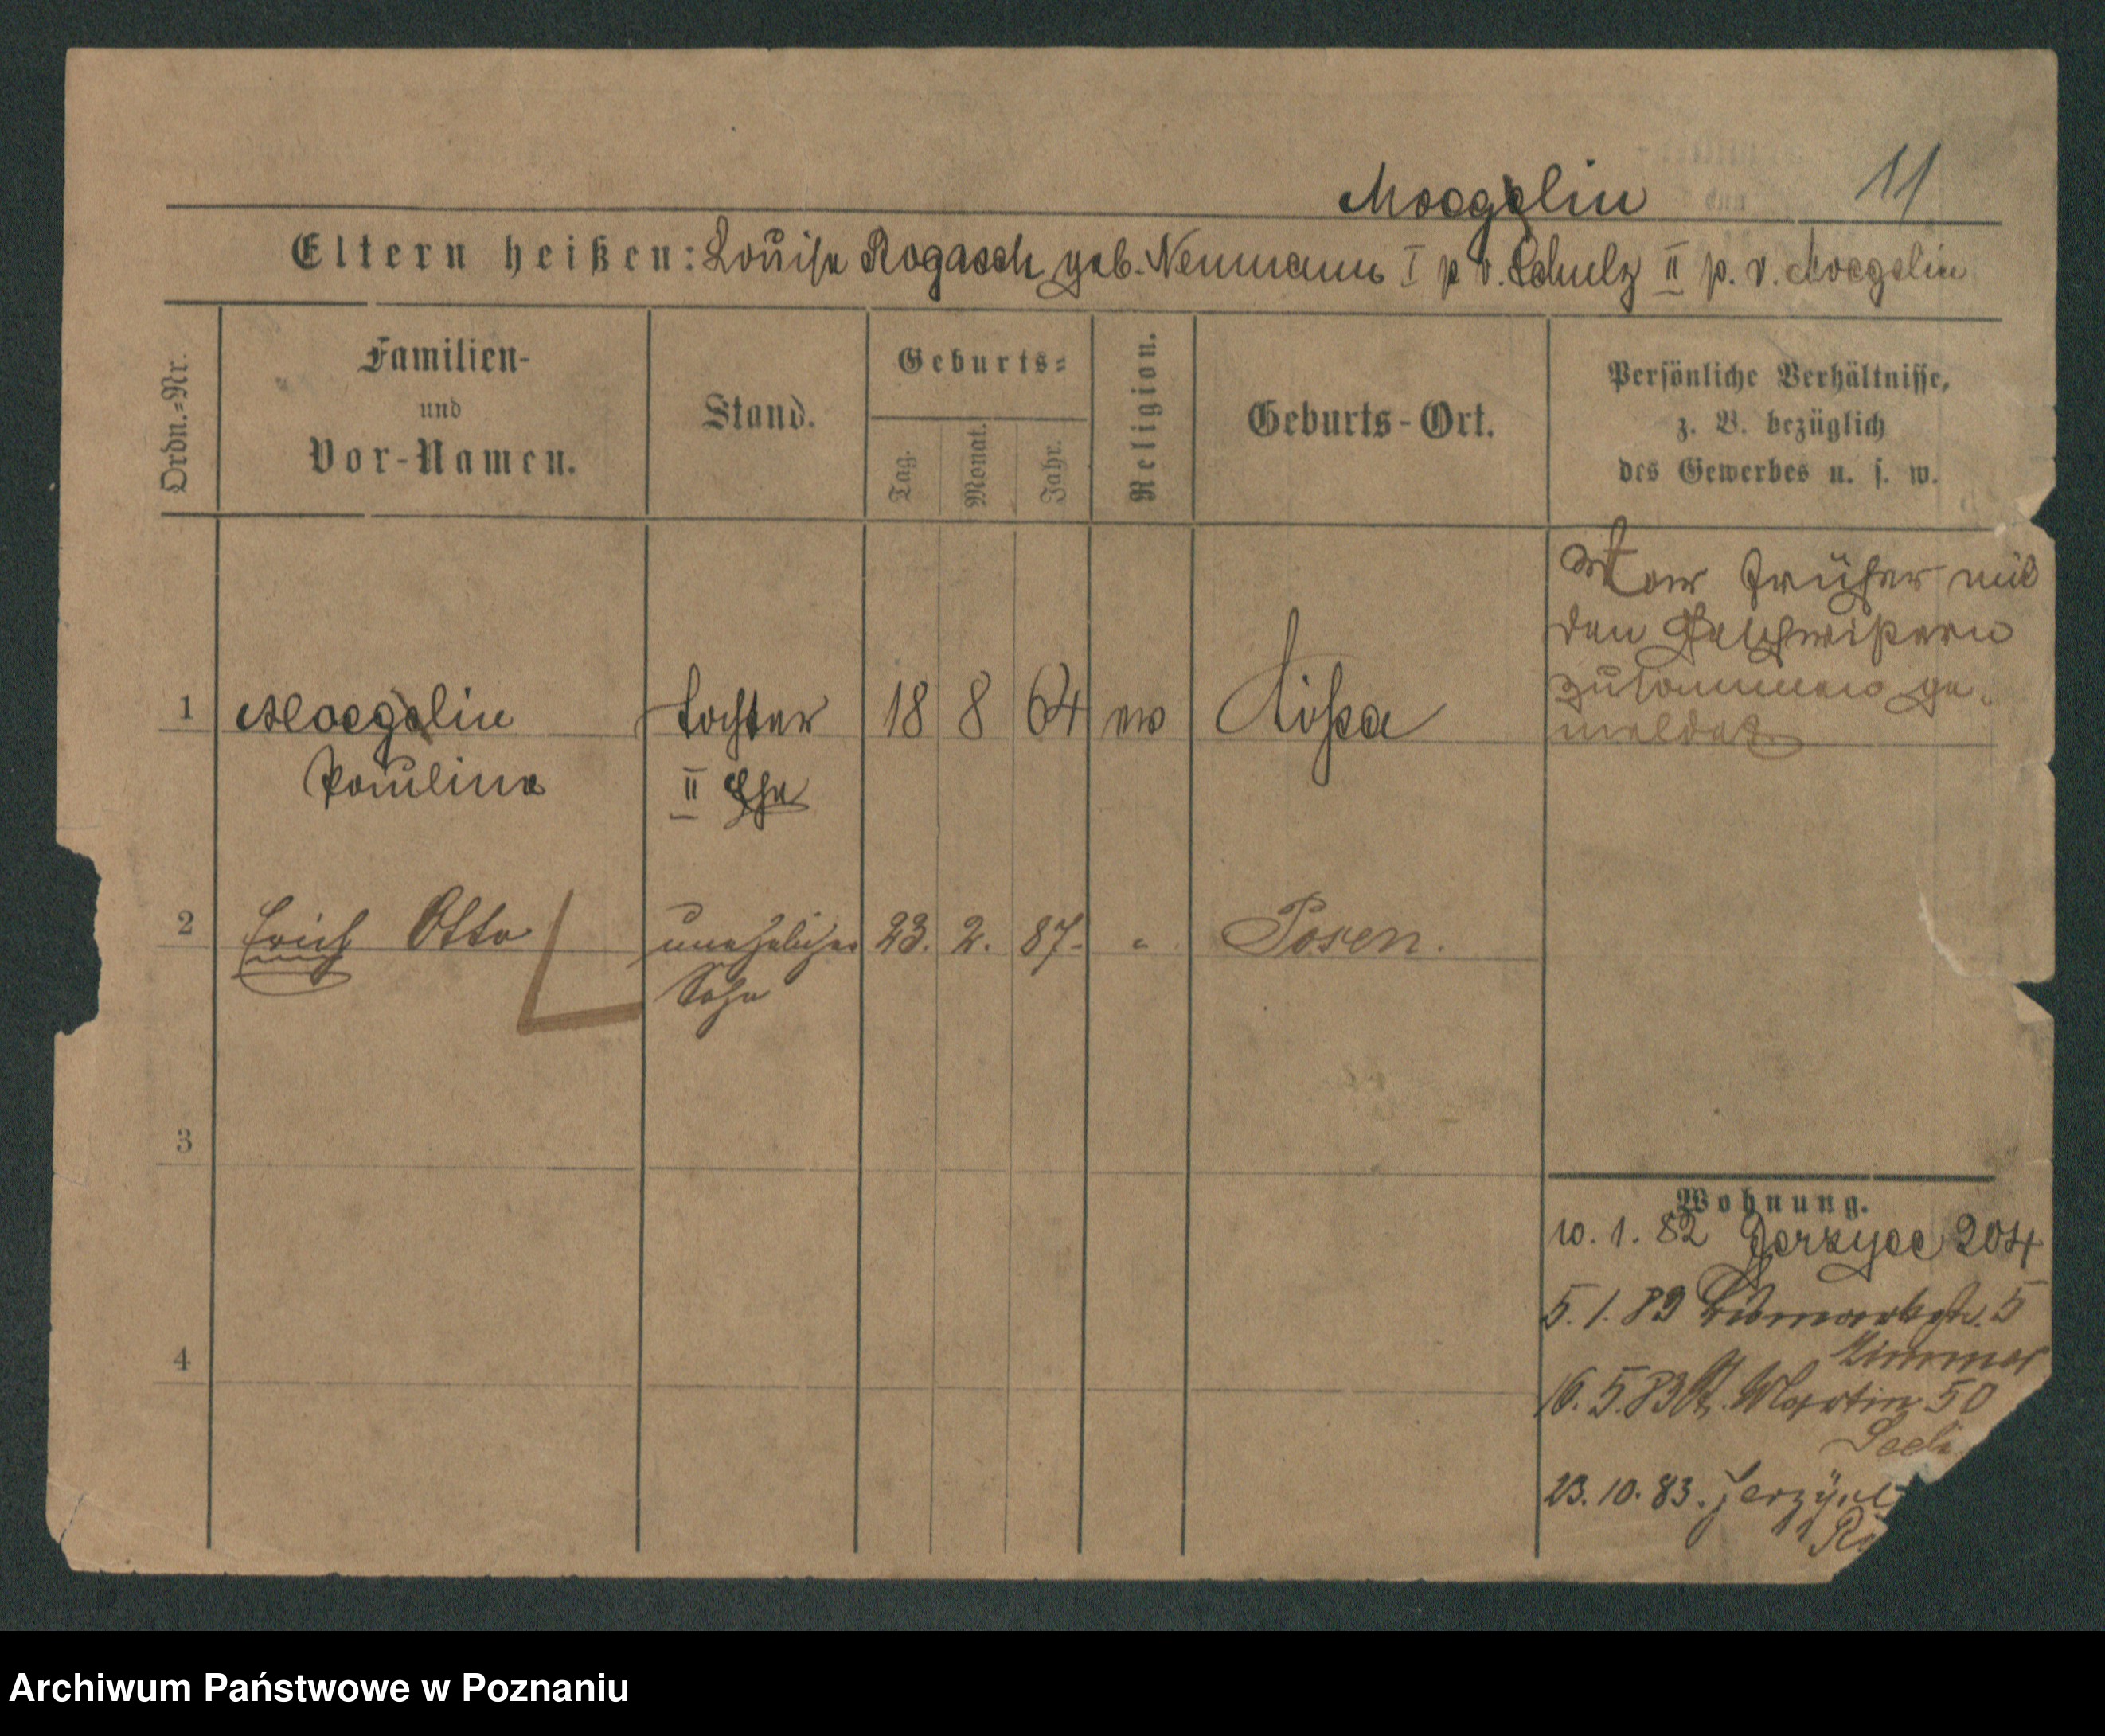 Moegelin 11
Eltern heißen: Louise Rogasch geb. Neumann I p. v. Schulz II p. v. Moegelin
Ordn.=Nr.
Familien-
und
Vor-Namen.
Stand.
Geburts=
Tag.
Monat.
Jahr.
Religion.
Geburts-Ort.
Persönliche Verhältnisse,
z. B. bezüglich
des Gewerbes u. s. w.
War früher mit
den Geschwistern
zusammen ge-
meldet.
1 Moegelin Tochter 18 8 64 ev Lissa
Pauline II Ehe
2 Erich Otto unehelicher 23. 2. 87. " Posen.
Sohn
3
4
Wohnung.
10. 1. 82 Jerzyce 204
5. 1. 83 Bismarckstr. 5
Zimmer
16. 5. 83 St. Martin 50
23. 10. 83. Jerzyce
Archiwum Państwowe w Poznaniu